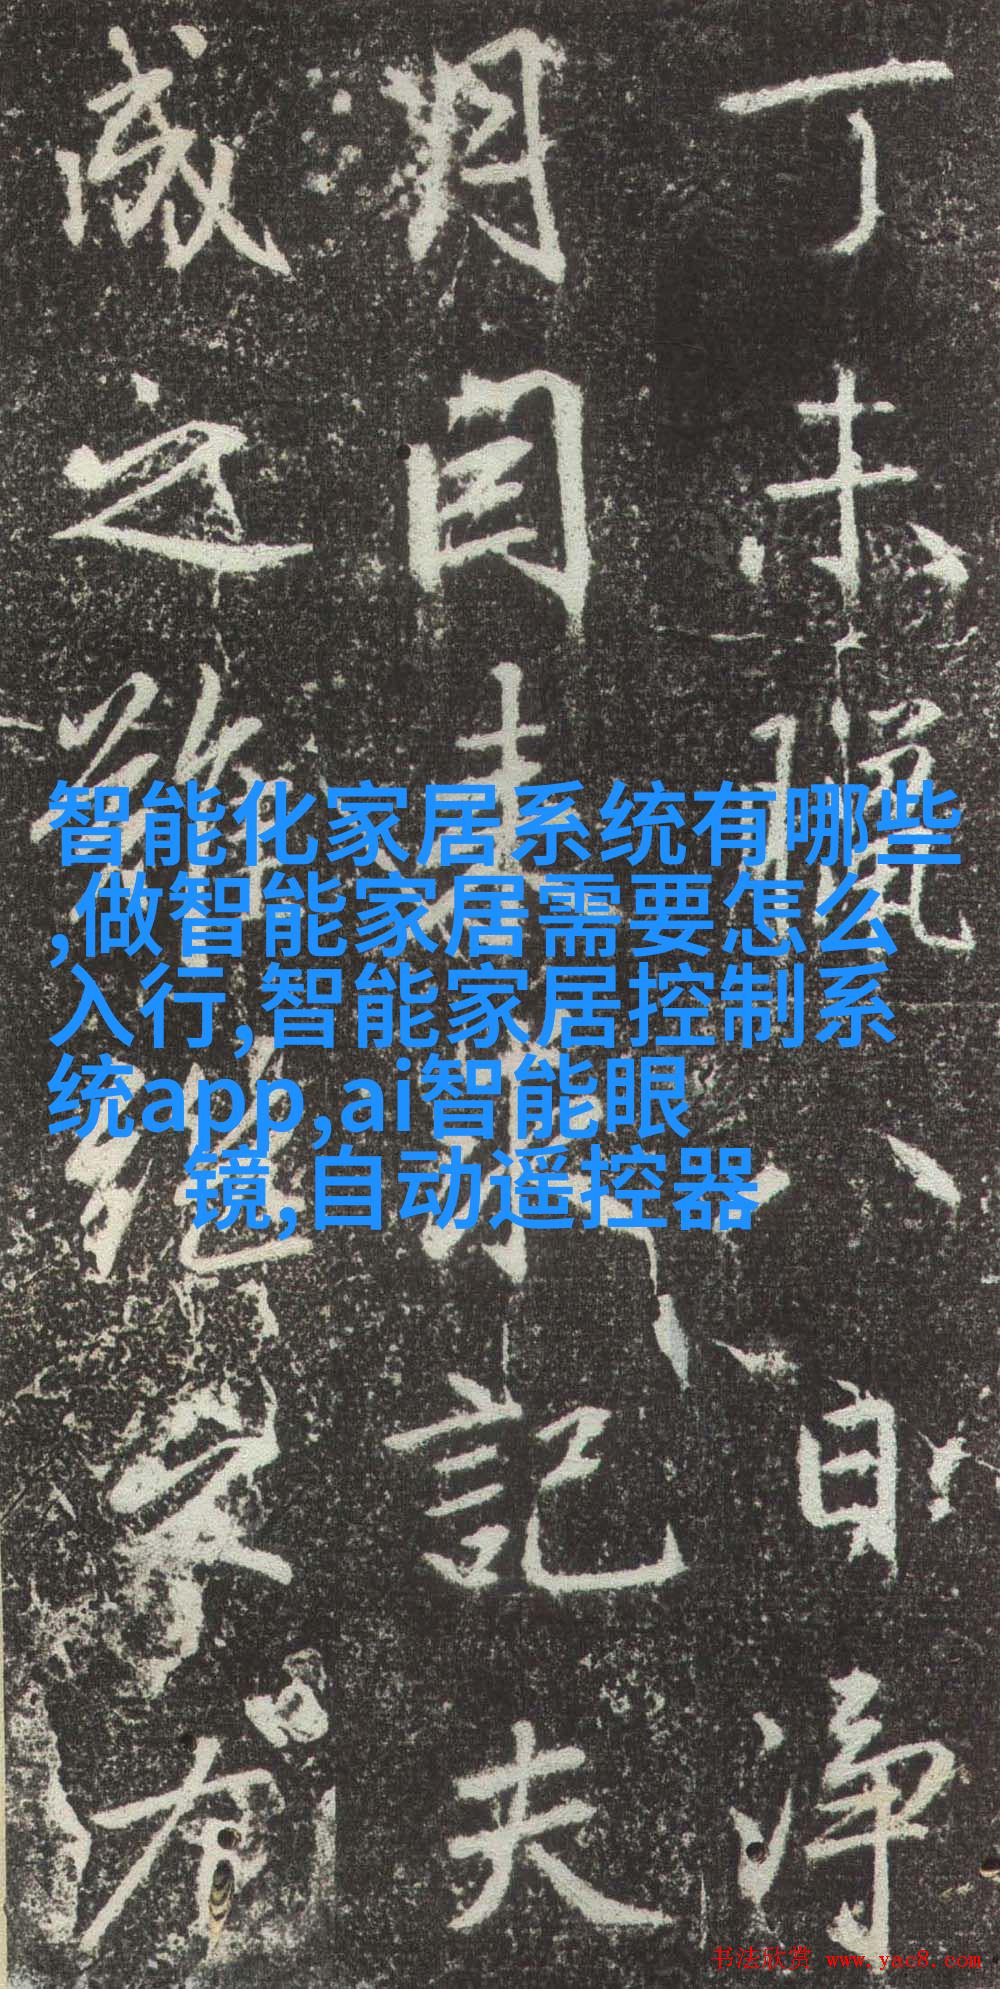 丁未臘八日淨
月來求記夫
成之難
智能化家居系统有哪些
,做智能家居需要怎么
入行,智能家居控制系
统app,ai智能眼
镜,自动遥控器
书法欣赏 www.yac8.com